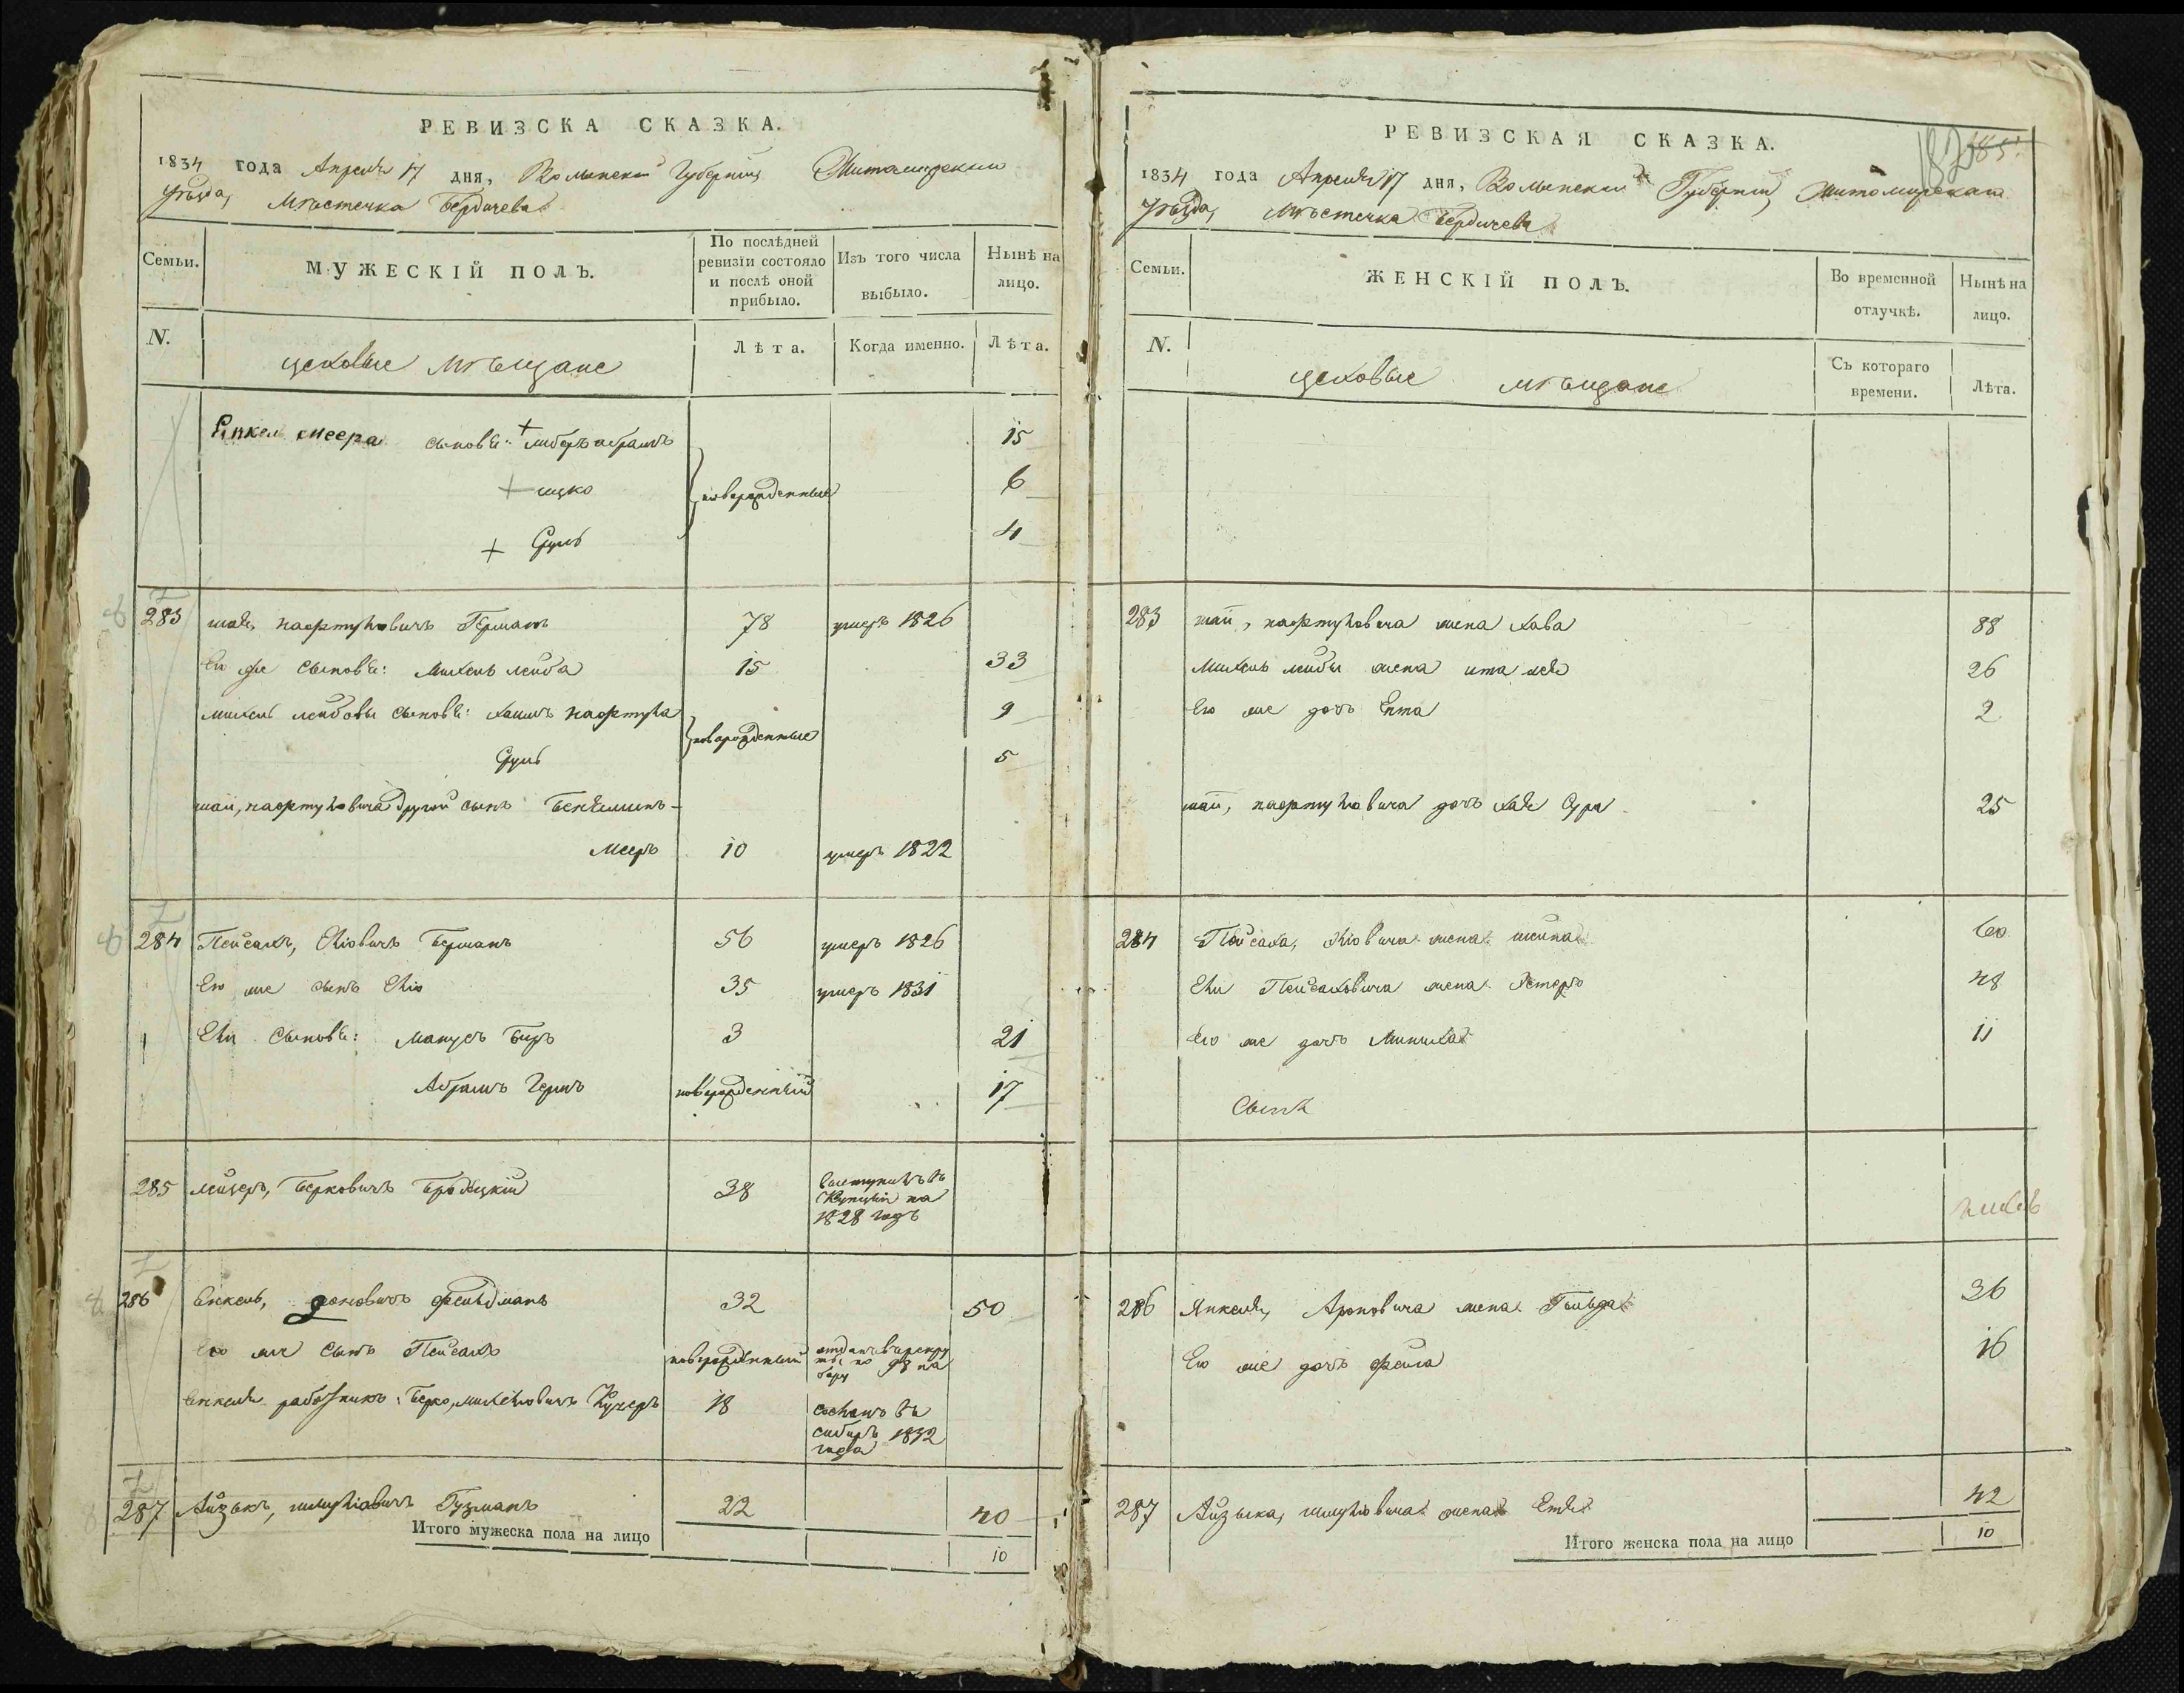 РЕВИЗСКА СКАЗКА.
1834 года Апреля 17 дня, Волынской Губернии Житомирскаго
уѣзда, Мѣстечка Бердичева
Семьи.
МУЖЕСКІЙ ПОЛЪ.
По послѣдней ревизіи состояло и послѣ оной прибыло.
Изъ того числа выбыло.
Нынѣ на лицо.
N.
цеховые мѣщане
Лѣта.
Когда именно.
Лѣта.
меера сыновья: либеръ абрамъ 15
ицко новорожденные 6
Сруль 4
283 шая, нафтуловичъ Германъ 78 умеръ 1826
Его же сыновья: михель лейба 15 33
михель лейбовы сыновья: хаимъ нафтула 9
новорожденные
Сруль 5
шаи, нафтуловича другой сынъ Бенямынъ-
мееръ 10 умеръ 1822
284 Пейсахъ, Берманъ 56 умеръ 1826
Его же сынъ 35 умеръ 1831
сыновья: Манусъ Беръ 3 21
Абрамъ Гершъ новорожденный 17
285 лейзеръ, Берковичъ Бродецкій 38 выступилъ въ
Купцы на
1828 годъ
286 Янкель, Фельдманъ 32 50
Его же сынъ Пейсахъ новорожденный отданъ въ рекру
ты по на
бору
Янкеля работникъ: Берко, Кучеръ 18 сосланъ въ
сибирь 1832
года
287 Айзыкъ, шмуловичъ Гузманъ 22 40
Итого мужеска пола на лицо 10
РЕВИЗСКАЯ СКАЗКА.
185
1834 года Апреля 17 дня, Волынской Губернии Житомирскаго
уѣзда, Мѣстечка Бердичева
Семьи.
ЖЕНСКІЙ ПОЛЪ.
Во временной отлучкѣ.
Нынѣ на лицо.
N.
цеховые мѣщане
Съ котораго времени.
Лѣта.
283 шаи, нафтуловича жена хава 88
михель лейбы жена ита лея 26
Его же дочь Ента 2
шаи, нафтуловича дочь хая Сура 25
284 Пейсаха, жена шейна 60
Пейсаховича жена Эстеръ 48
Его же дочь 11
286 Янкеля, Ароновича жена Гольда 36
Его же дочь фейга 16
287 Айзыка, шмуловича жена Етля 42
Итого женска пола на лицо 10